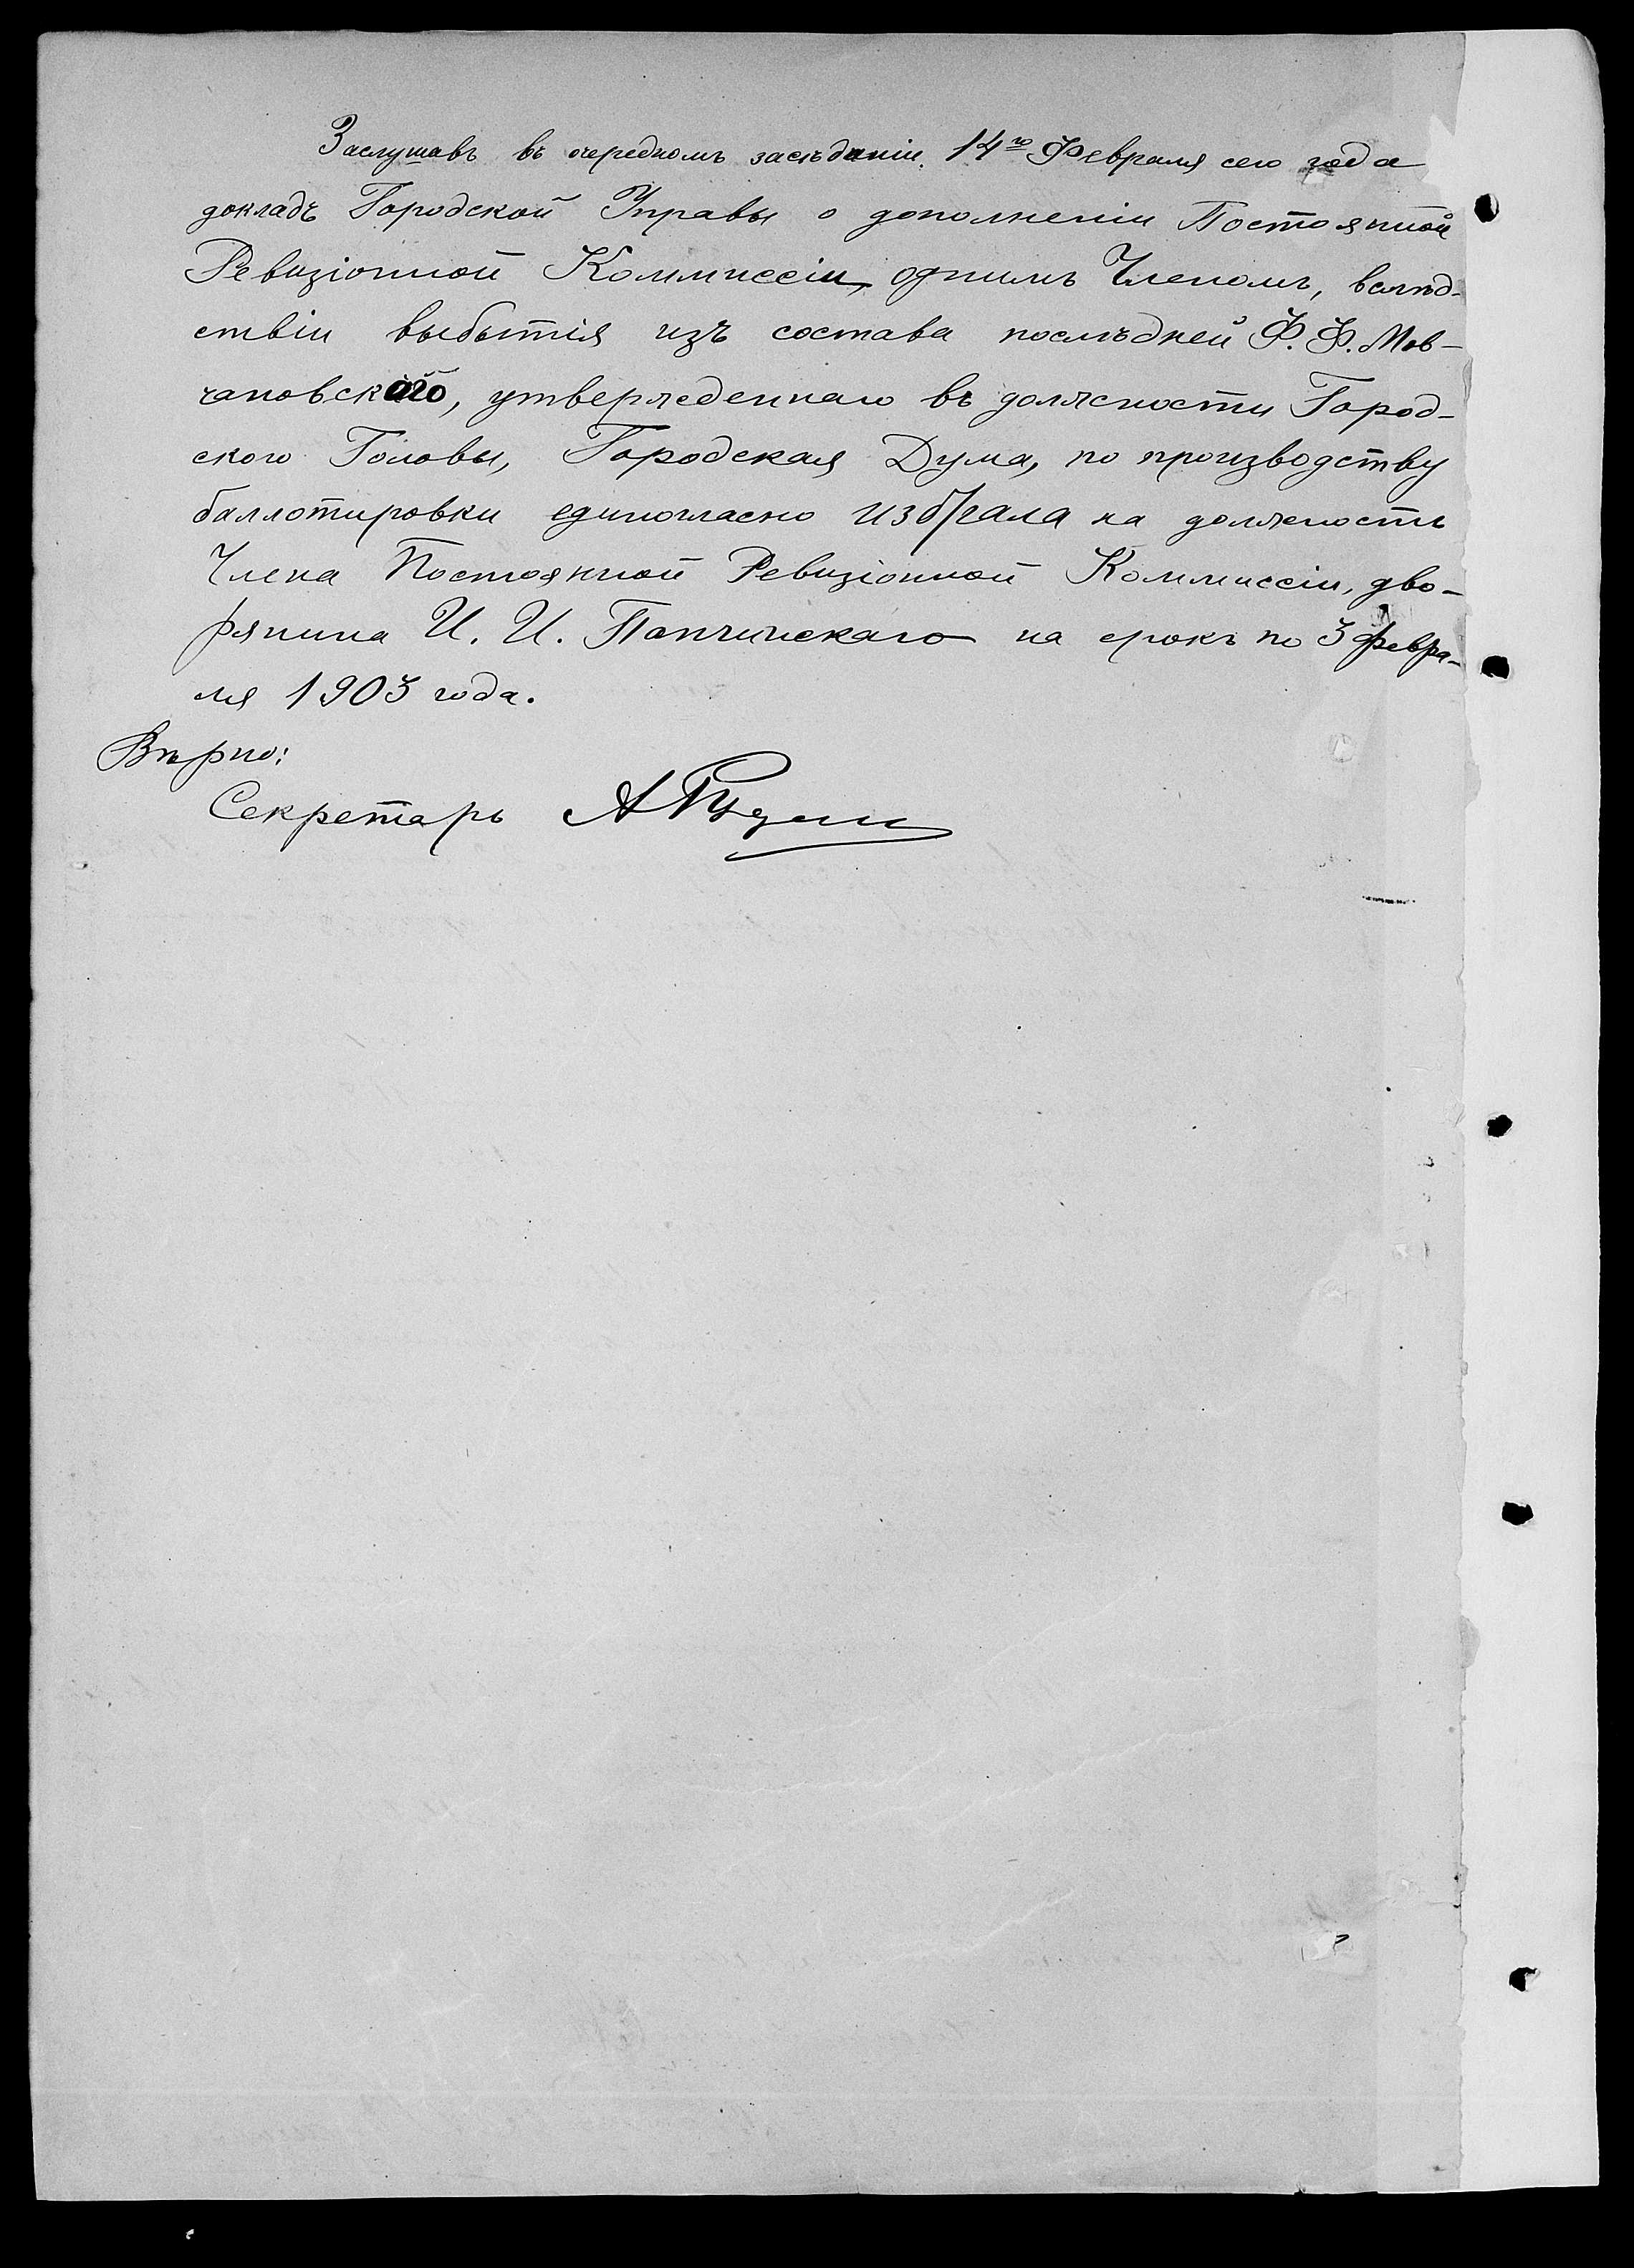 Заслушавъ въ очередномъ засѣданіи 14го Февраля сего года
докладъ Городской Управы о дополненіи Постоянной
Ревизіонной Коммиссіи, однимъ Членомъ, вслѣд-
ствіи выбытія изъ состава послѣдней Ф. Ф. Мов-
чановскаго, утвержденнаго въ должности Город-
ского Головы, Городская Дума, по производству
баллотировки единогласно избрала на должность
Члена Постоянной Ревизіонной Коммиссіи, дво-
рянина И. И. Панчинскаго на срокъ по 3 февра-
ля 1903 года.
Вѣрно:
Секретарь